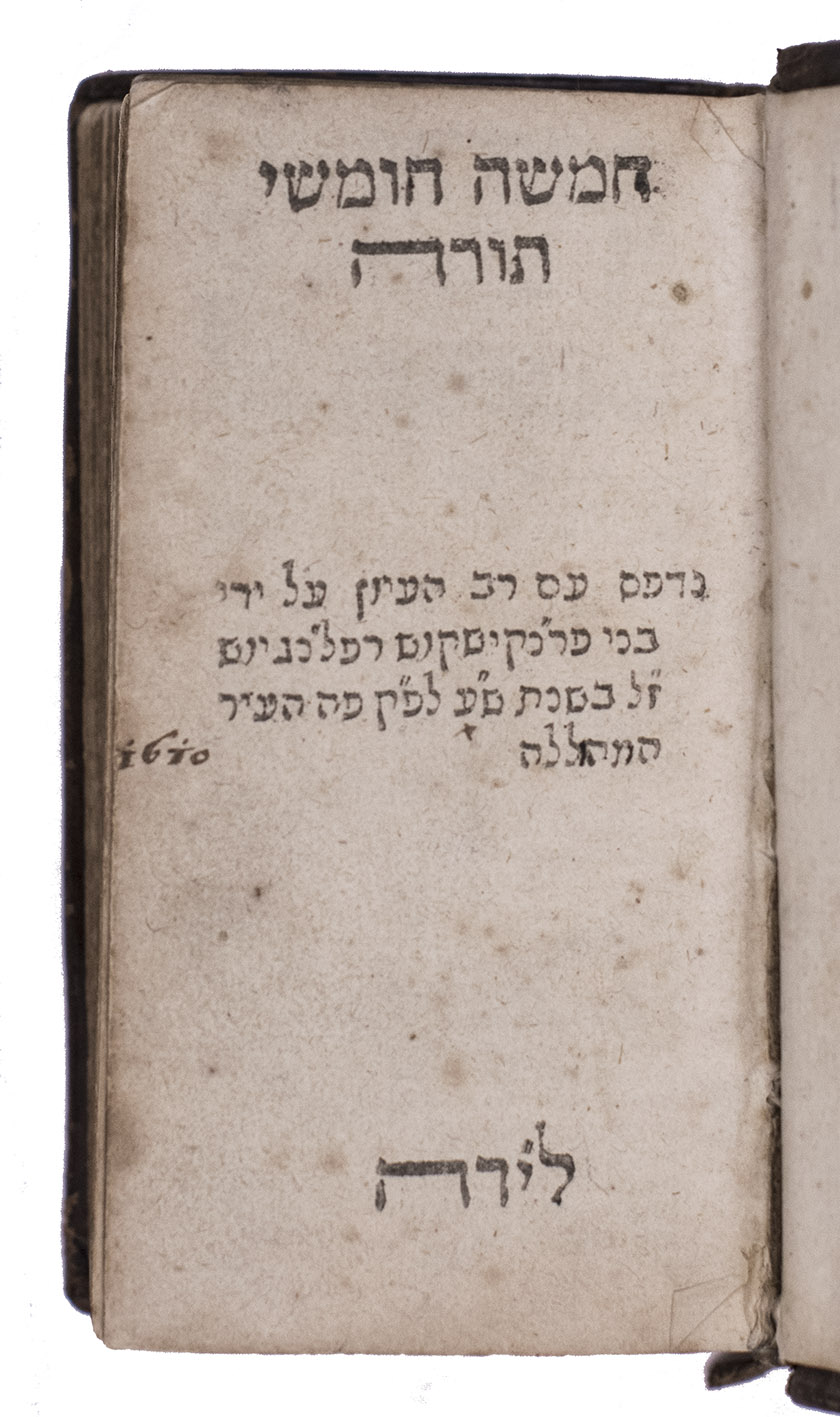 חמשה חומשי
תורה
נדפס עם רב העיון על ידי
בני פר״נקישקוש רפל״נגיוש
ז״ל בשנת ש״ע לפ״ק פה העיר
המהללה
1610
לידה